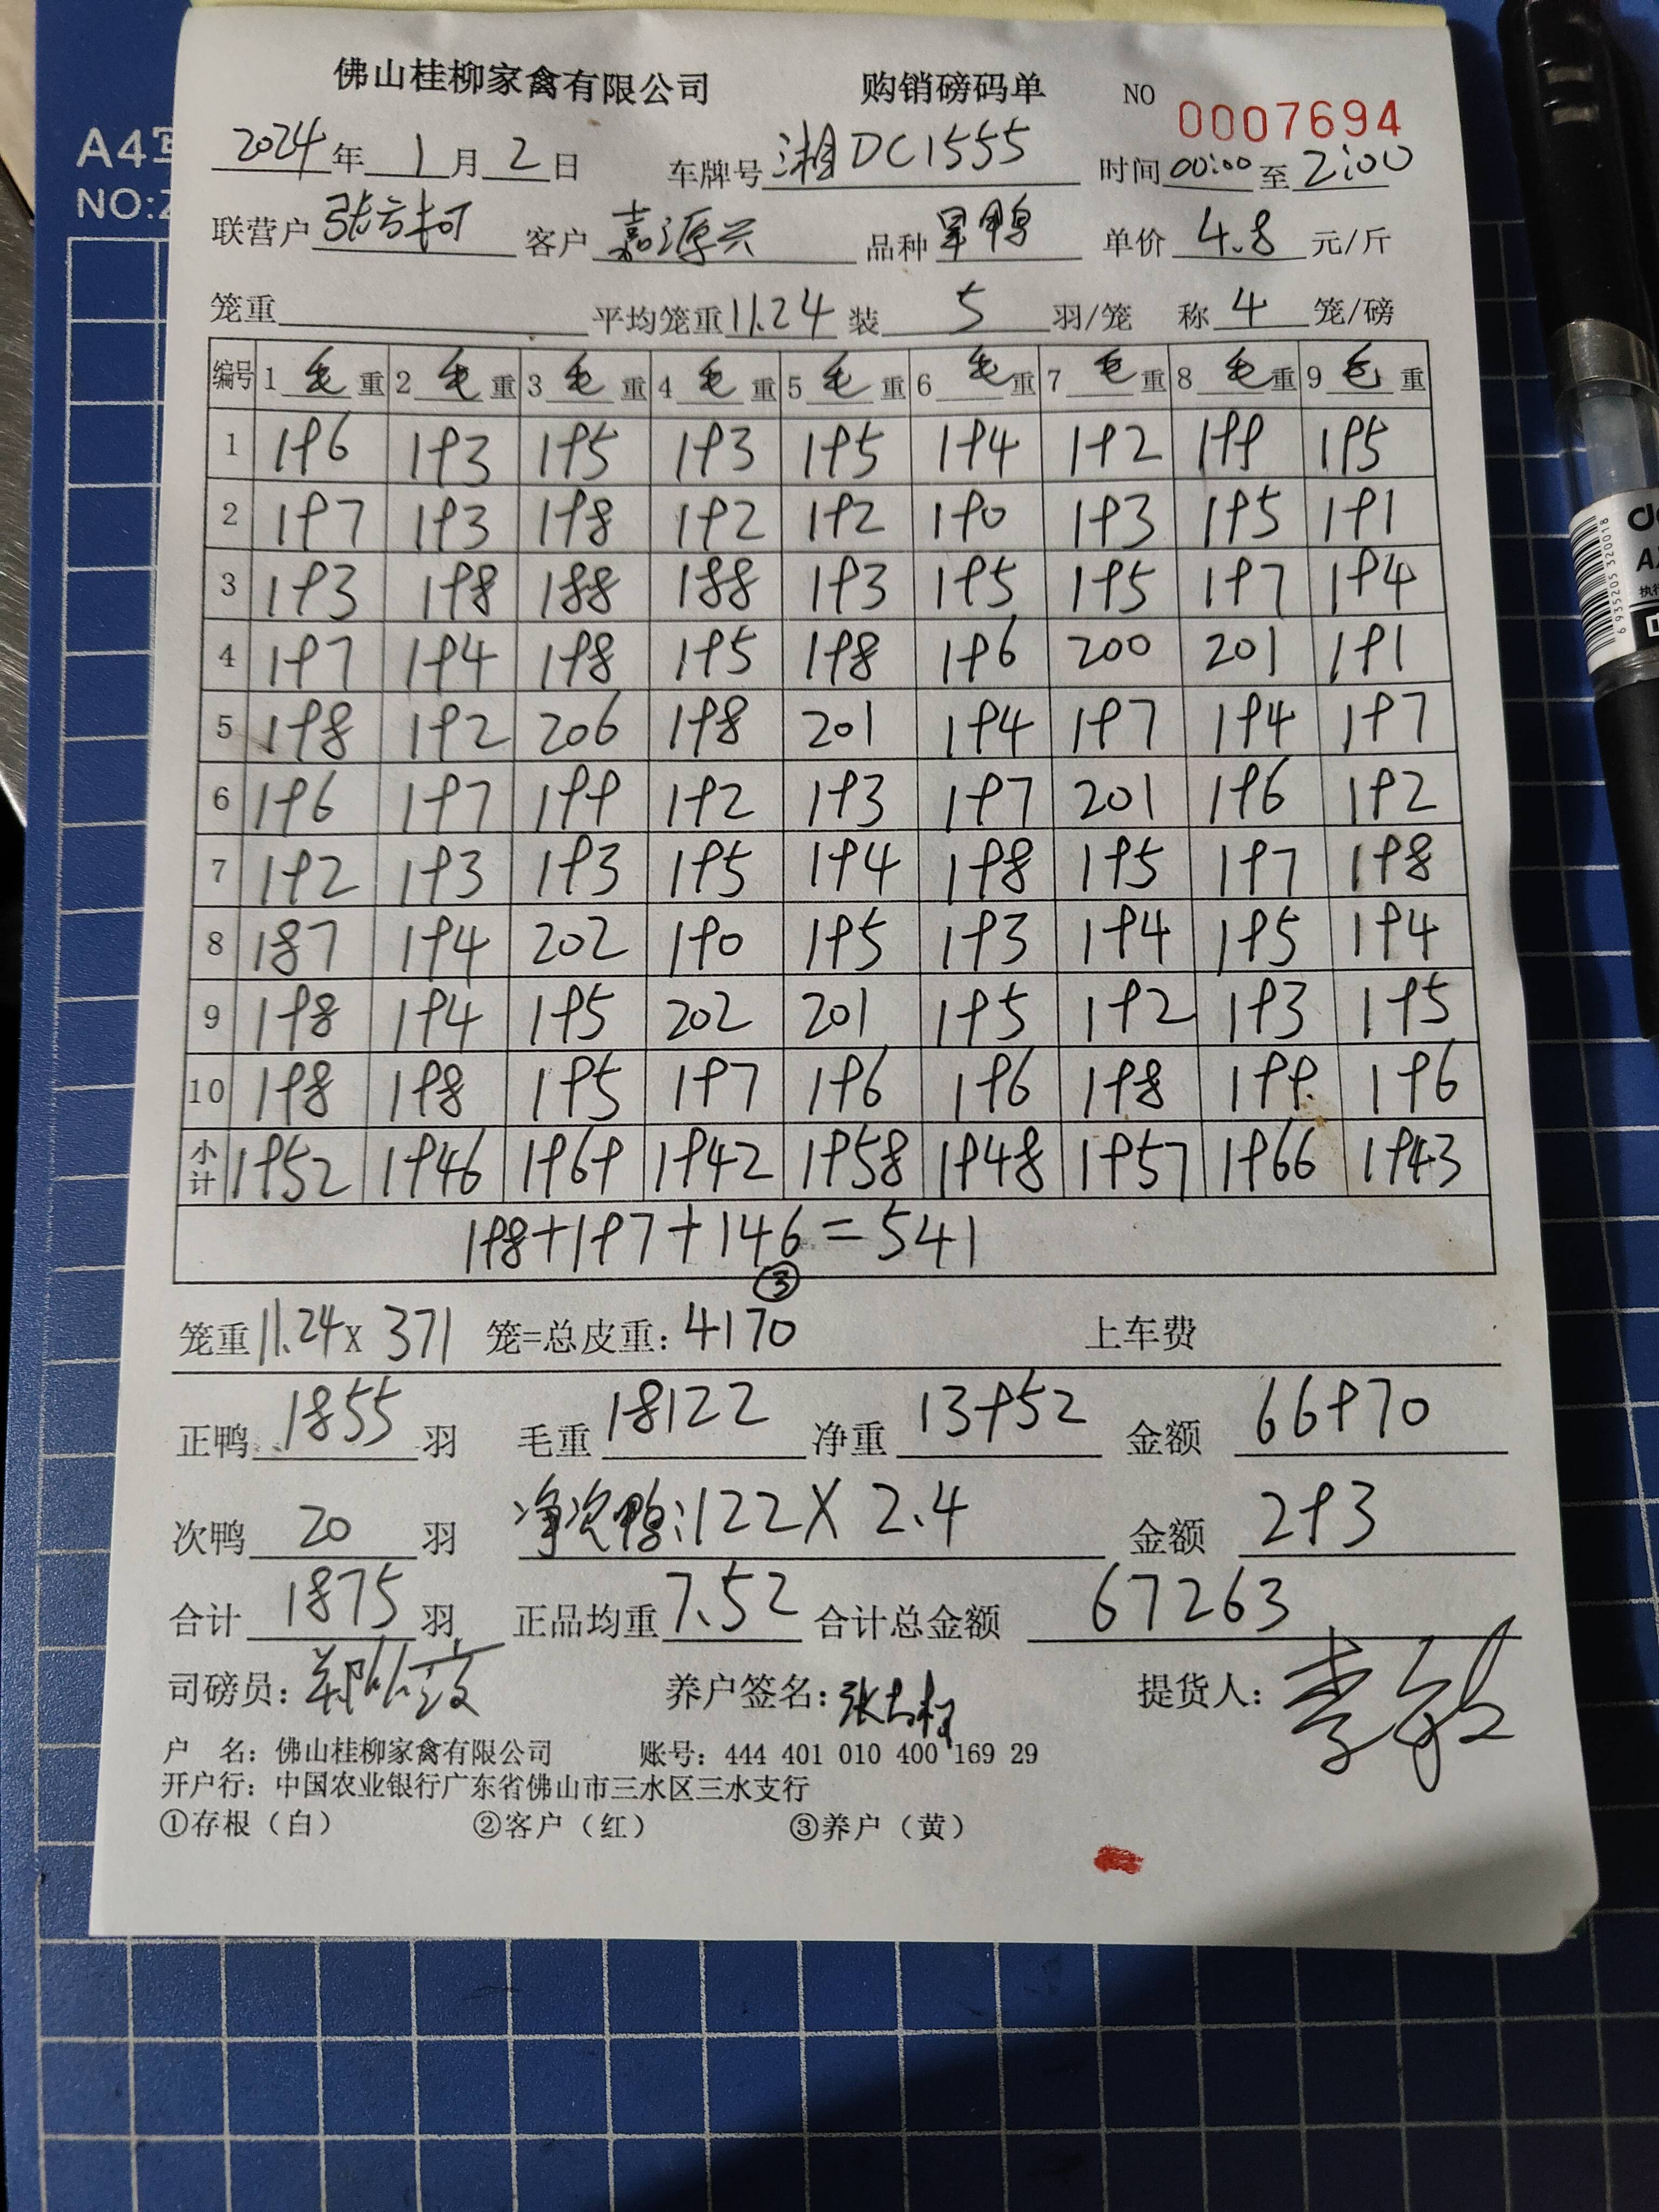 佛山桂柳家禽有限公司 购销磅码单 NO 0007694
A4
NO:
2024年1月2日 车牌号 湘DC1555 时间 00:00 至 2:00
联营户 张方柯 客户 嘉源兴 品种 旱鸭 单价 4.8 元/斤
笼重 平均笼重 11.24 装 5 羽/笼 称 4 笼/磅
编号 1 毛重 2 毛重 3 毛重 4 毛重 5 毛重 6 毛重 7 毛重 8 毛重 9 毛重
1 196 193 195 193 195 194 192 199 195
2 197 193 198 192 192 190 193 195 191
3 193 198 188 188 193 195 195 197 194
4 197 194 198 195 198 196 200 201 191
5 198 192 206 198 201 194 197 194 197
6 196 197 199 192 193 197 201 196 192
7 192 193 193 195 194 198 195 197 198
8 187 194 202 190 195 193 194 195 194
9 198 194 195 202 201 195 192 193 195
10 198 198 195 197 196 196 198 199 196
小计 1952 1946 1969 1942 1958 1948 1957 1966 1943
198+197+146=541
③
笼重 11.24 x 371 笼=总皮重: 4170 上车费
正鸭 1855 羽 毛重 18122 净重 13952 金额 66970
次鸭 20 羽 净次鸭:122 X 2.4 金额 293
合计 1875 羽 正品均重 7.52 合计总金额 67263
司磅员: 养户签名: 张方柯 提货人: 李敏
户 名: 佛山桂柳家禽有限公司 账号: 444 401 010 400 169 29
开户行: 中国农业银行广东省佛山市三水区三水支行
①存根（白） ②客户（红） ③养户（黄）
6 935205 320018